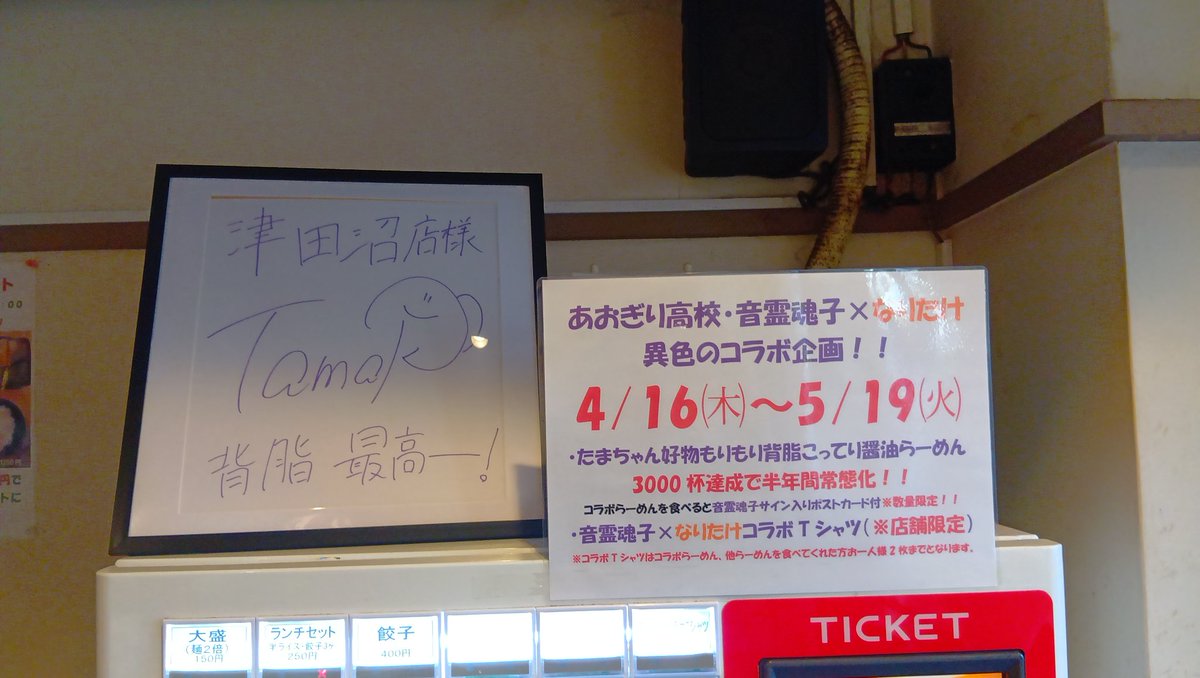 津田沼店様
Tama
背脂 最高ー!
あおぎり高校・音霊魂子×なりたけ
異色のコラボ企画!!
4/16(木)~5/19(火)
・たまちゃん好物もりもり背脂こってり醤油らーめん
3000杯達成で半年間常態化!!
コラボらーめんを食べると音霊魂子サイン入りポストカード付※数量限定!!
・音霊魂子×なりたけコラボTシャツ(※店舗限定)
※コラボTシャツはコラボらーめん、他らーめんを食べてくれた方お一人様2枚までとなります。
大盛
(麺2倍)
150円
ランチセット
半ライス・餃子3ヶ
250円
餃子
400円
TICKET